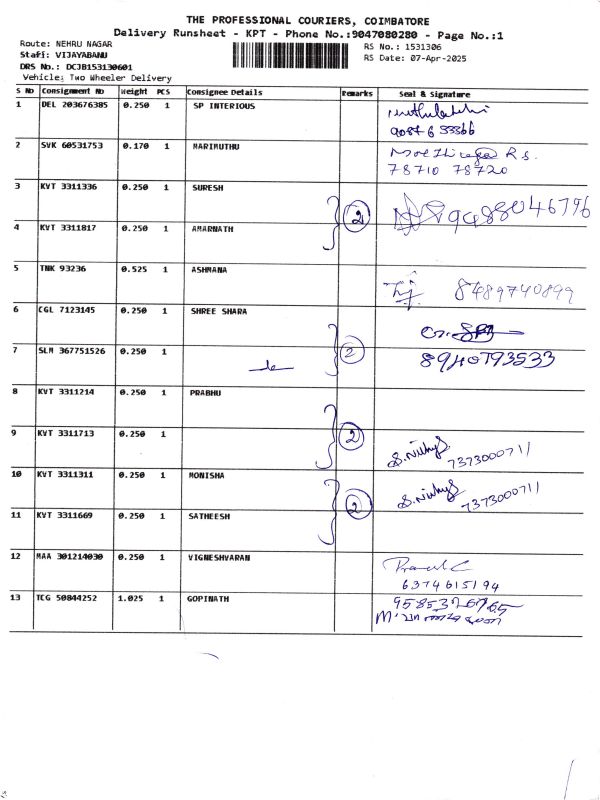 THE PROFESSIONAL COURIERS, COIMBATORE
Delivery Runsheet - KPT - Phone No.:9047080280 - Page No.:1
Route: NEHRU NAGAR
Staff: VIJAYABANU
DRS No.: DCJB153130601
Vehicle: Two Wheeler Delivery
RS No.: 1531306
RS Date: 07-Apr-2025
S No Consignment No Weight PCS Consignee Details Remarks Seal & Signature
1 DEL 203676385 0.250 1 SP INTERIOUS
2 SVK 60531753 0.170 1 MARIMUTHU
78710 78720
3 KVT 3311336 0.250 1 SURESH
2 9488046796
4 KVT 3311817 0.250 1 AMARNATH
5 TNK 93236 0.525 1 ASHMANA
8489740899
6 CGL 7123145 0.250 1 SHREE SHARA
2
7 SLM 367751526 0.250 1
8940793533
8 KVT 3311214 0.250 1 PRABHU
2
9 KVT 3311713 0.250 1
7373000711
10 KVT 3311311 0.250 1 MONISHA
2 7373000711
11 KVT 3311669 0.250 1 SATHEESH
12 MAA 301214030 0.250 1 VIGNESHVARAN
6374615194
13 TCG 50844252 1.025 1 GOPINATH